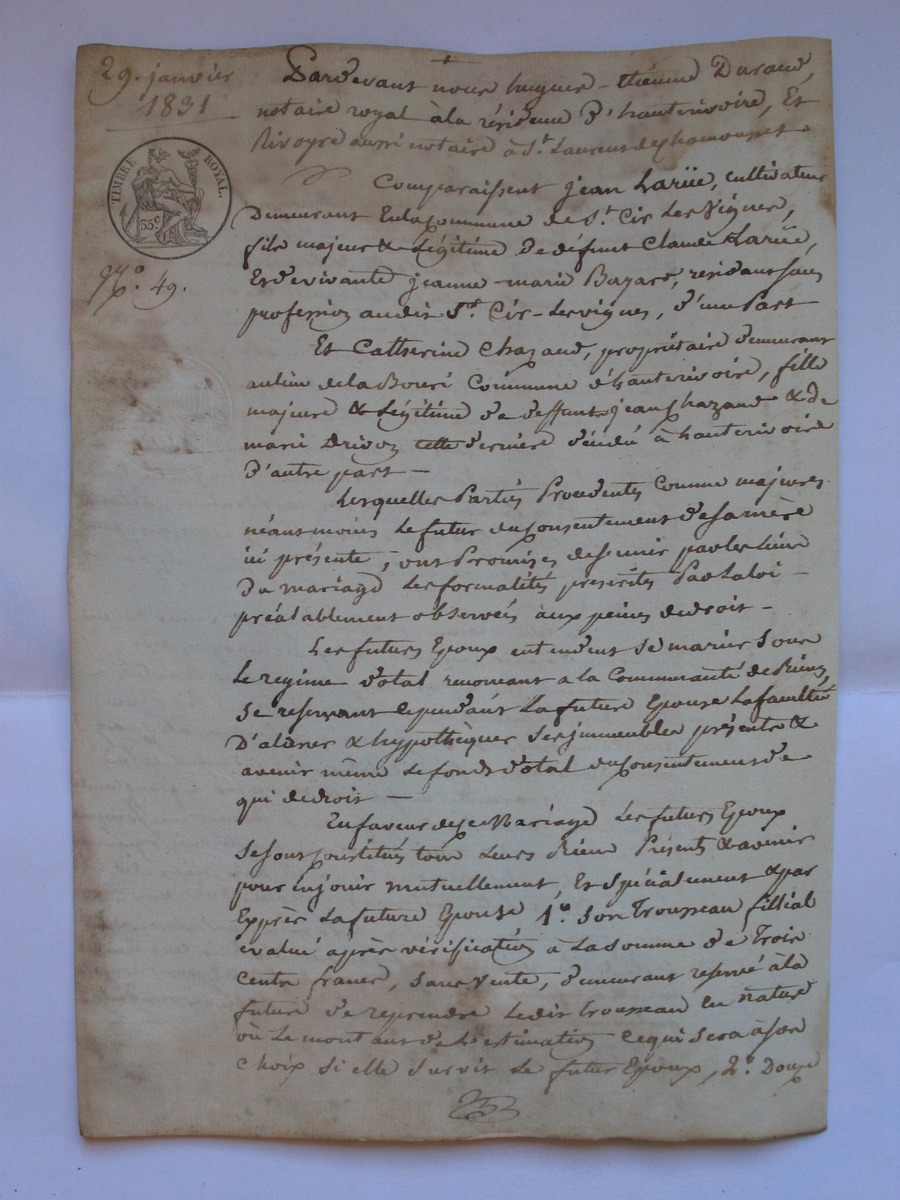 29. janvier
1831
TIMBRE ROYAL.
35.c
No. 49.
Pardevant nous hugues-étienne Durand,
notaire royal à la résidence d'hauterivoire, Et
Rivoyre aussi notaire à St. Laurent de chamousset
Comparaissent jean Larüe, cultivateur
Demeurant En la commune de St Cir Les Vignes,
fils majeur & Légitime De défunt Claude Larüe,
Et de vivante jeanne-marie Bazard, residant sans
profession audit St. Cir-Les vignes, d'une Part
Et Catherine Chazaud, propriétaire demeurant
au lieu de la Commune d'hauterivoire, fille
majeure & Légitime de deffunts jean Chazaud & de
marie cette dernière décédé à hauterivoire
D'autre part —
Lesquelles Parties Procedentes Comme majeures
néantmoins Le futur du Consentement de sa mère
ici présente, ont Promises de s'unir par les Liens
Du mariage Les formalités préscrites Par La loi —
préalablement observeés aux peines de droit —
Les futurs Epoux entendent se marier Sous
Le regime dotal renonceant a la Communauté de Biens,
se reservant cependant La future Epouse La faculté
D'aliéner & hypothèquer ses immeubles présents &
avenir même Le fonds dotal du Consentement de
qui de droit —
En faveur de ce Mariage Les futurs Epoux
se sont Constitués tous Leurs Biens Présents & avenir
pour en jouir mutuellement, Et Spécialement & par
Exprès La future Epouse 1.o Son Trousseau fillial
évalué après vérification à La somme de Trois
Cents francs, sans vente, demeurant reservé à la
future de reprendre Ledit trousseau En nature
où Le montant de L'estimation ce qui sera à son
choix si elle survit Le futur Epoux, 2.o Douze